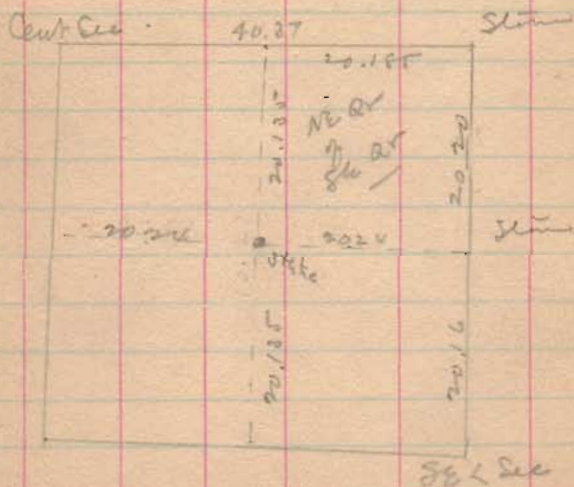 Cent Sec. 40.37 Stone
20.185
20.185
NE Qr
of
SW Qr
20.20
20.24 20.24 Stone
Stake
20.185
20.16
SE < Sec